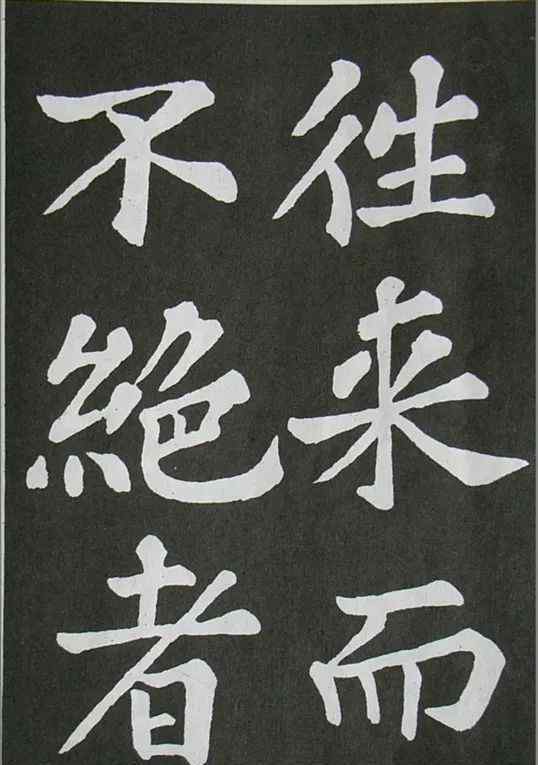 往来而
不絶者